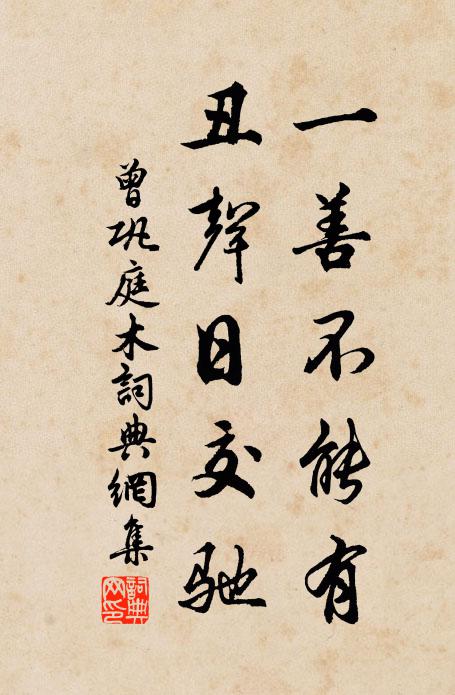 一善不能有
丑聲日交馳
曾巩庭木詞典網集
詞典网印